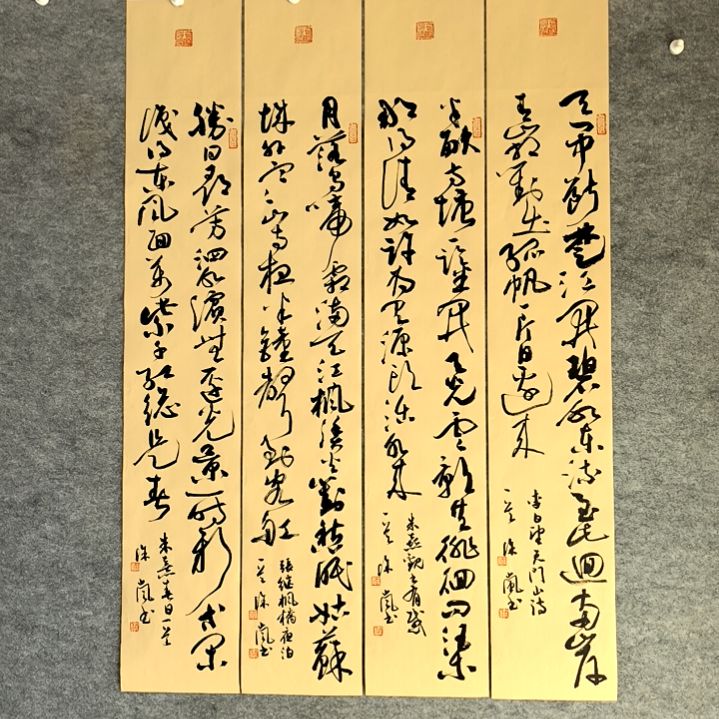 天門中斷楚江開碧水東流至此迴兩岸
青山相對出孤帆一片日邊來
李白望天門山詩
一首 深嵐书
半畝方塘一鑑開天光雲影共徘徊問渠
那得清如許為有源頭活水來
朱熹觀書有感
一首 深嵐书
月落烏啼霜滿天江楓漁火對愁眠姑蘇
城外寒山寺夜半鐘聲到客船
張继楓橋夜泊
一首 深嵐书
勝日尋芳泗水濱無邊光景一時新等閑
識得東風面萬紫千紅總是春
朱熹春日一首
深嵐书